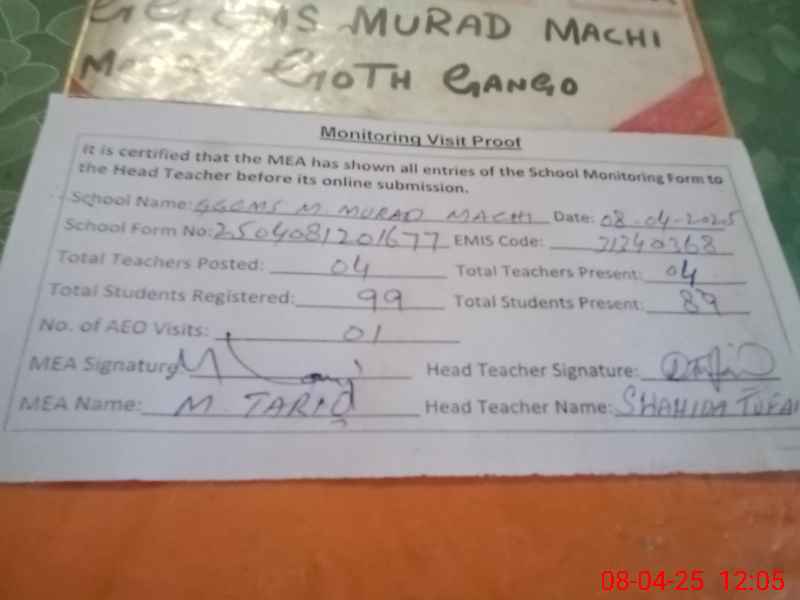 GGCMS MURAD MACHI
GOTH GANGO
Monitoring Visit Proof
It is certified that the MEA has shown all entries of the School Monitoring Form to
the Head Teacher before its online submission.
School Name: GGCMS M MURAD MACHI Date: 08-04-2025
School Form No: 2504081201677 EMIS Code: 31340368
Total Teachers Posted: 04 Total Teachers Present: 04
Total Students Registered: 99 Total Students Present: 89
No. of AEO Visits: 01
MEA Signature Head Teacher Signature:
MEA Name: M. TARIQ Head Teacher Name: SHAHIDA TUFAI
08-04-25 12:05